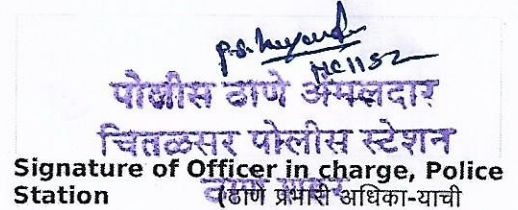 HC1152
पोलीस ठाणे अंमलदार
चितळसर पोलीस स्टेशन
ठाणे शहर
Signature of Officer in charge, Police
Station (ठाणे प्रभारी अधिका-याची